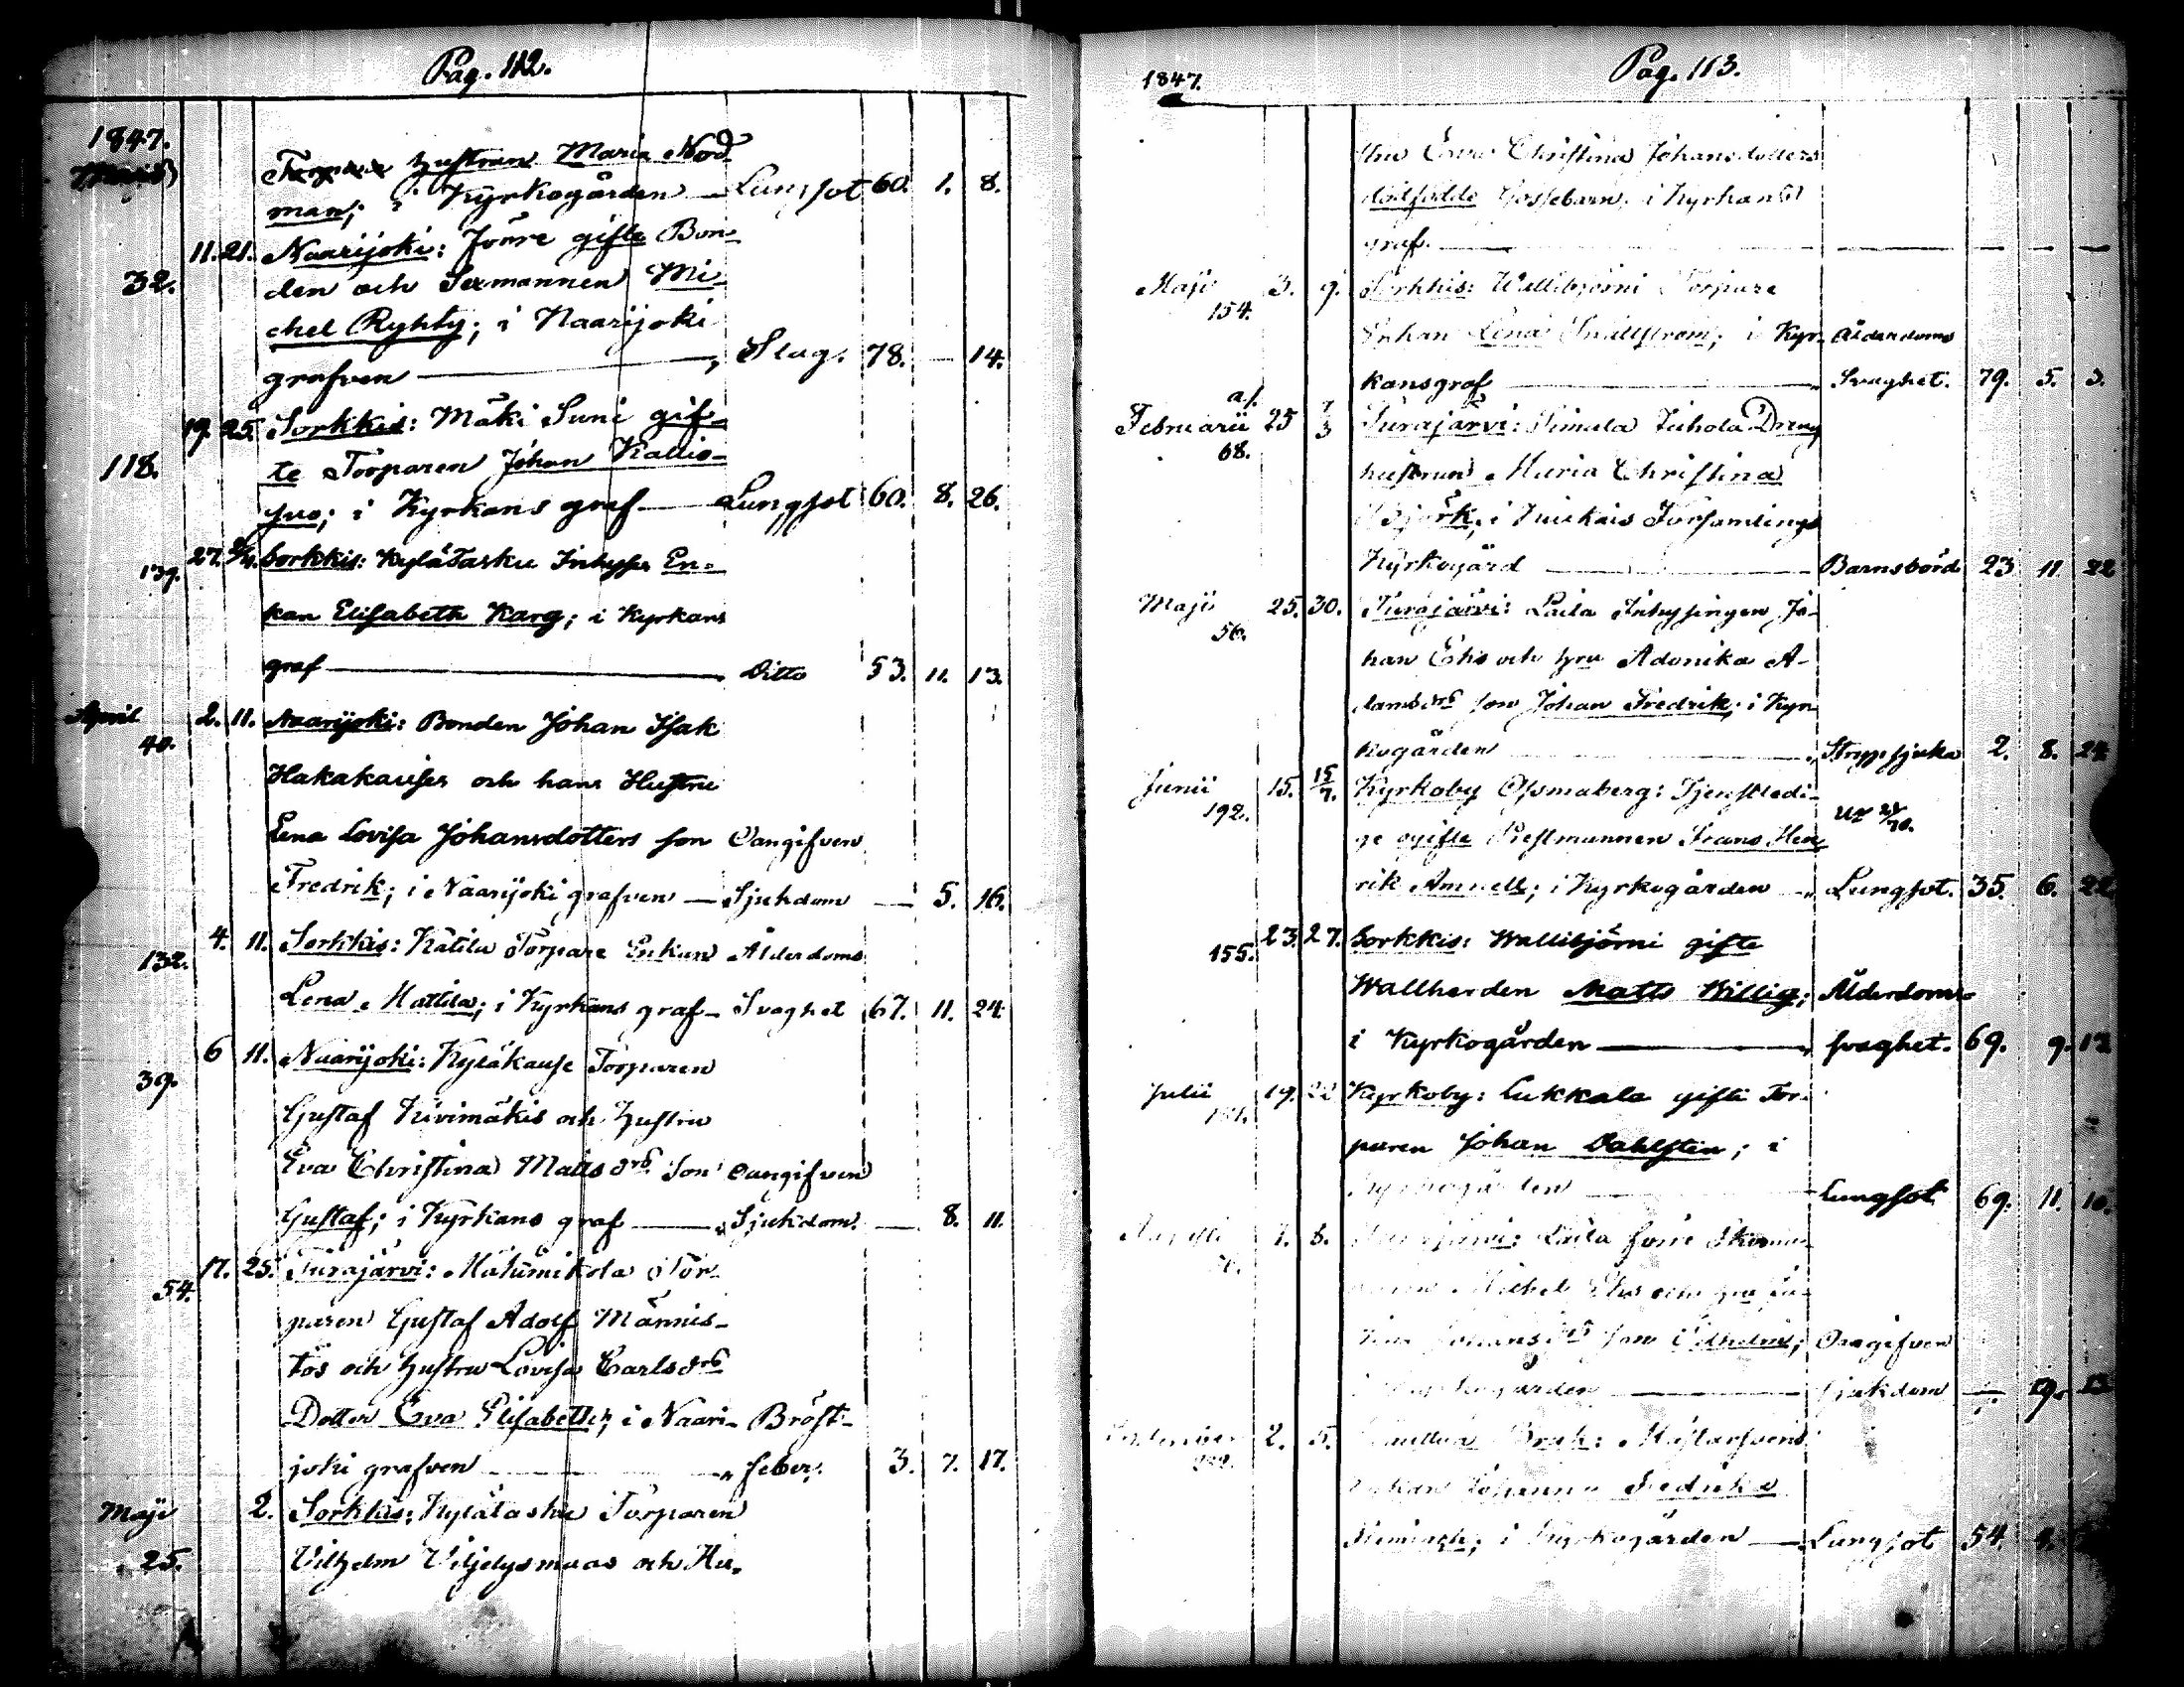 Pag. 112.
1847.
Hustrun Maria Nord
man; i Kyrkogården — Lungsot 60. 1. 8.
11. 21. Naarijoki: Förre gifte Bon-
32. den och Sexmannen Mi-
chel Ryhty; i Naarijoki
grafven — Slag. 78. — 14.
19. 25. Sorkkis: Mäki Suni gif-
118. te Torparen Johan Kallio-
; i Kyrkans graf — Lungsot 60. 8. 26.
139. 27. Sorkkis: Kylätasku Inhyses En-
kan Elisabeth Karg; i Kyrkans
graf — Ditto 53. 11. 13.
April 2. 11. Naarijoki: Bonden Johan Isak
40. Hakakauses och hans Hustru
Lena Lovisa Johansdotters son Oangifven
Fredrik; i Naarijoki grafven — Sjukdom — 5. 16.
4. 11. Sorkkis: Katila Torpare Enkan Ålderdoms
132. Lena Mattila; i Kyrkans graf — Svaghet 67. 11. 24.
6 11. Naarijoki: Kyläkause Torparen
39. Gustaf Kivimäkis och Hustru
Eva Christina Matts drs Son Oangifven
Gustaf; i Kyrkans graf — Sjukdom. — 8. 11.
17. 25. Turajärvi: Matumikola Tor-
54. paren Gustaf Adolf Männis-
tös och Hustru Lovisa Carls drs
Dotter Eva Elisabeth; i Naari- Bröst-
joki grafven — feber. 3. 7. 17.
Maji 2. Sorkkis: Kylätasku Torparen
25. Vilhelm Viljelysmaas och Hu-
1847. Pag. 113.
stru Eva Christina Johansdotters
dödfödde Gossebarn; i Kyrkans
graf. —
Maji 3. 9. Sorkkis: Wallibjörni Torpare
154. Enkan Lena Snällström; i Kyr- Ålderdoms
kansgraf — Svaghet. 79. 5. 3.
Februarii 25 7/3 Turajärvi: Simula Juhola Dreng
68. hustrun Maria Christina
Björk; i Församlings
Kyrkogård — Barnsbörd 23 11. 22
Maji 25. 30. Turajärvi: Laila Inhysingen Jo-
56. han Eskos och Hru Adonika A-
dams drs son Johan Fredrik; i Kyr-
kogården — Strypsjuka 2. 8. 24
Junii 15. 15/7. Kyrkoby Ossmaberg: Tjenstledi-
192. ge ogifte Prestmannen Frans Hen-
rik Amnell; i Kyrkogården — Lungsot. 35. 6. 22
23. 27. Sorkkis: Wallibjörni gifte
155. Wallherden Matts Willig; Ålderdoms-
i Kyrkogården — svaghet. 69. 9. 12
Julii 19. 22 Kyrkoby: Lukkala gifte Tor-
paren Johan Dahlsten; i
Kyrkogården — Lungsot 69. 11. 10.
Augusti 1. 8. Turajärvi: Laila
Michel och Hru
Johans drs son Vilhelm; Oangifven
i Kyrkogården — sjukdom — 9.
2. 5.
Enkan Johanna Fredrika
Fleming; i Kyrkogården — Lungsot 54.